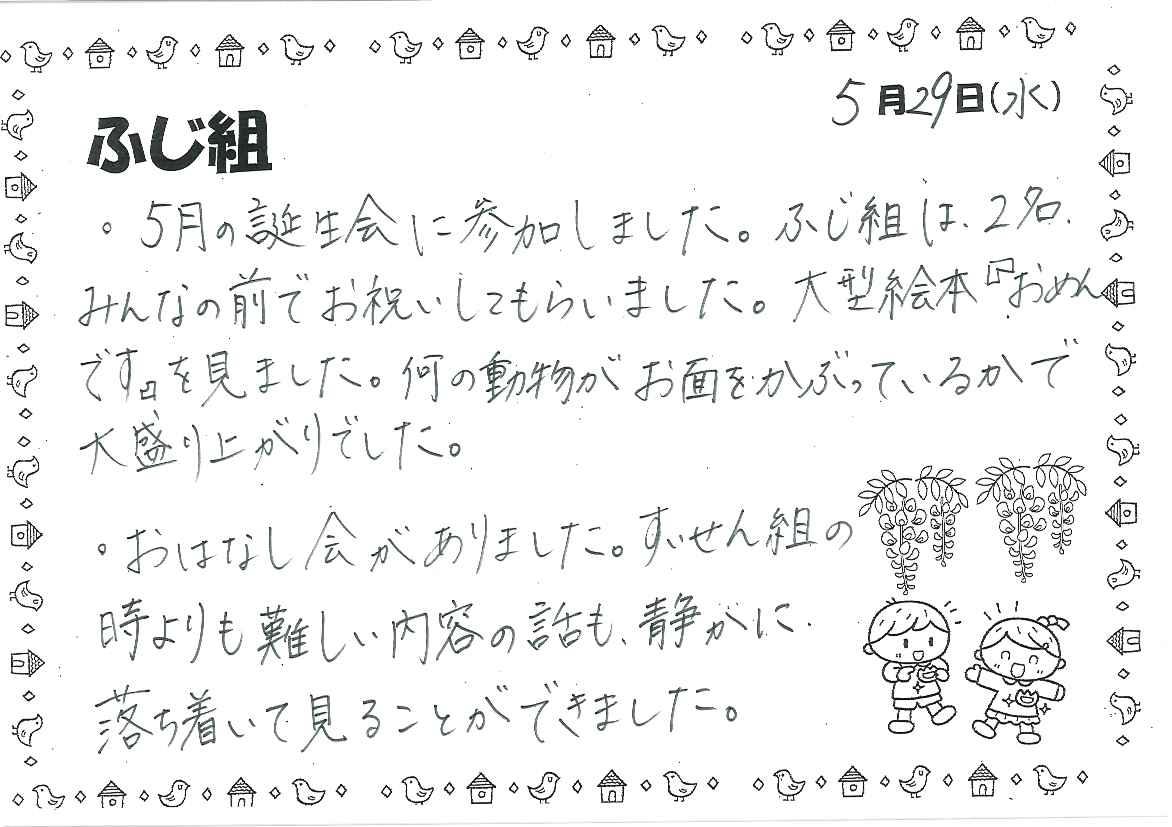 5月29日(水)
ふじ組
・5月の誕生会に参加しました。ふじ組は、2名、
みんなの前でお祝いしてもらいました。大型絵本『おめん
です』を見ました。何の動物がお面をかぶっているかで
大盛り上がりでした。
・おはなし会がありました。すいせん組の
時よりも難しい内容の話も、静かに
落ち着いて見ることができました。